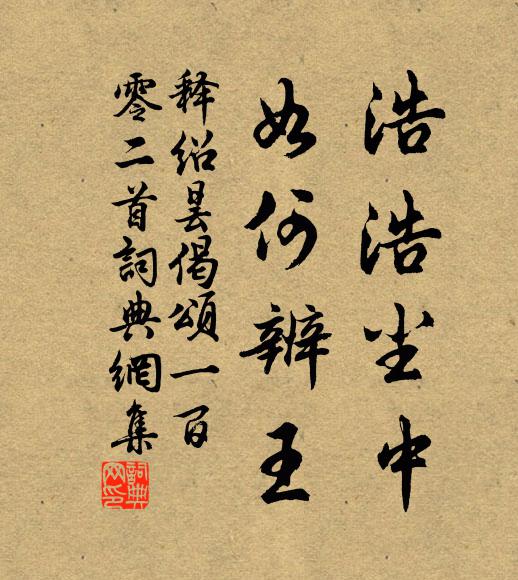 浩浩尘中
如何辨王
释绍昙偈颂一百
零二首詞典網集
詞典网印